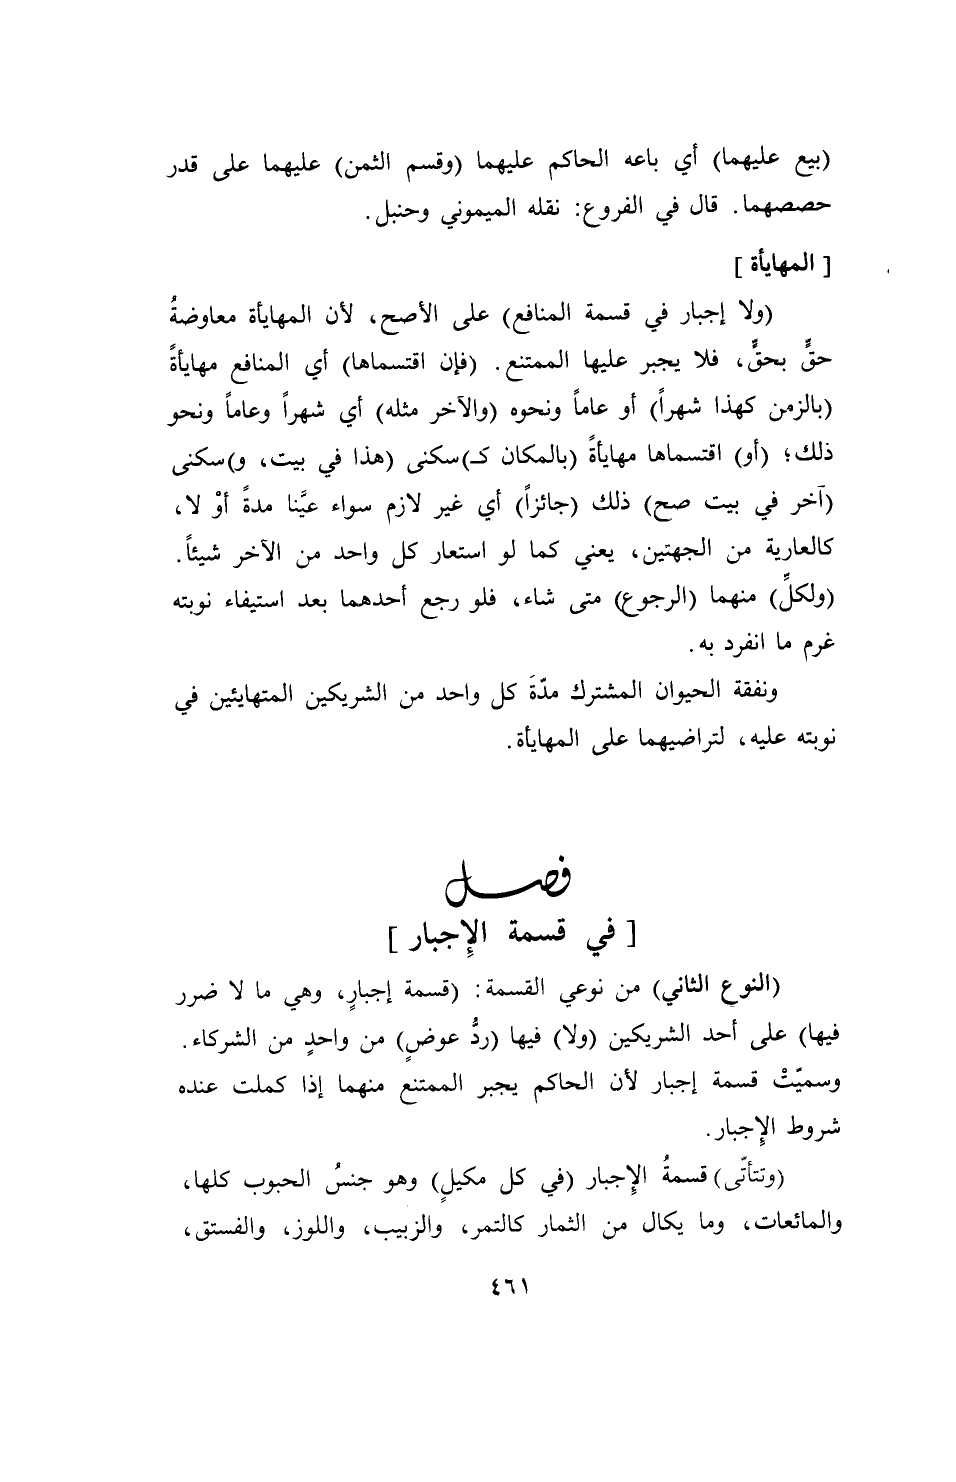 (بيع عليهما) أي باعه الحاكم عليهما (وقسم الثمن) عليهما على قدر
حصصهما. قال في الفروع: نقله الميموني وحنبل.
[ المهايأة ]
(ولا إجبار في قسمة المنافع) على الأصح، لأن المهايأة معاوضةُ
حقٍّ بحقٍّ، فلا يجبر عليها الممتنع. (فإن اقتسماها) أي المنافع مهايأةً
(بالزمن كهذا شهراً) أو عاماً ونحوه (والآخر مثله) أي شهراً وعاماً ونحو
ذلك؛ (أو) اقتسماها مهايأةً (بالمكان كـ)سكنى (هذا في بيت، و)سكنى
(آخر في بيت صح) ذلك (جائزاً) أي غير لازم سواء عيَّنا مدةً أوْ لا،
كالعارية من الجهتين، يعني كما لو استعار كل واحد من الآخر شيئاً.
(ولكلٍّ) منهما (الرجوع) متى شاء، فلو رجع أحدهما بعد استيفاء نوبته
غرم ما انفرد به.
ونفقة الحيوان المشترك مدّةَ كل واحد من الشريكين المتهايئين في
نوبته عليه، لتراضيهما على المهايأة.
فصل
[ في قسمة الإِجبار ]
(النوع الثاني) من نوعي القسمة: (قسمة إجبارٍ، وهي ما لا ضرر
فيها) على أحد الشريكين (ولا) فيها (ردُّ عوضٍ) من واحدٍ من الشركاء.
وسميّتْ قسمة إجبار لأن الحاكم يجبر الممتنع منهما إذا كملت عنده
شروط الإِجبار.
(وتتأتّى) قسمةُ الإِجبار (في كل مكيلٍ) وهو جنسُ الحبوب كلها،
والمائعات، وما يكال من الثمار كالتمر، والزبيب، واللوز، والفستق،
٤٦١